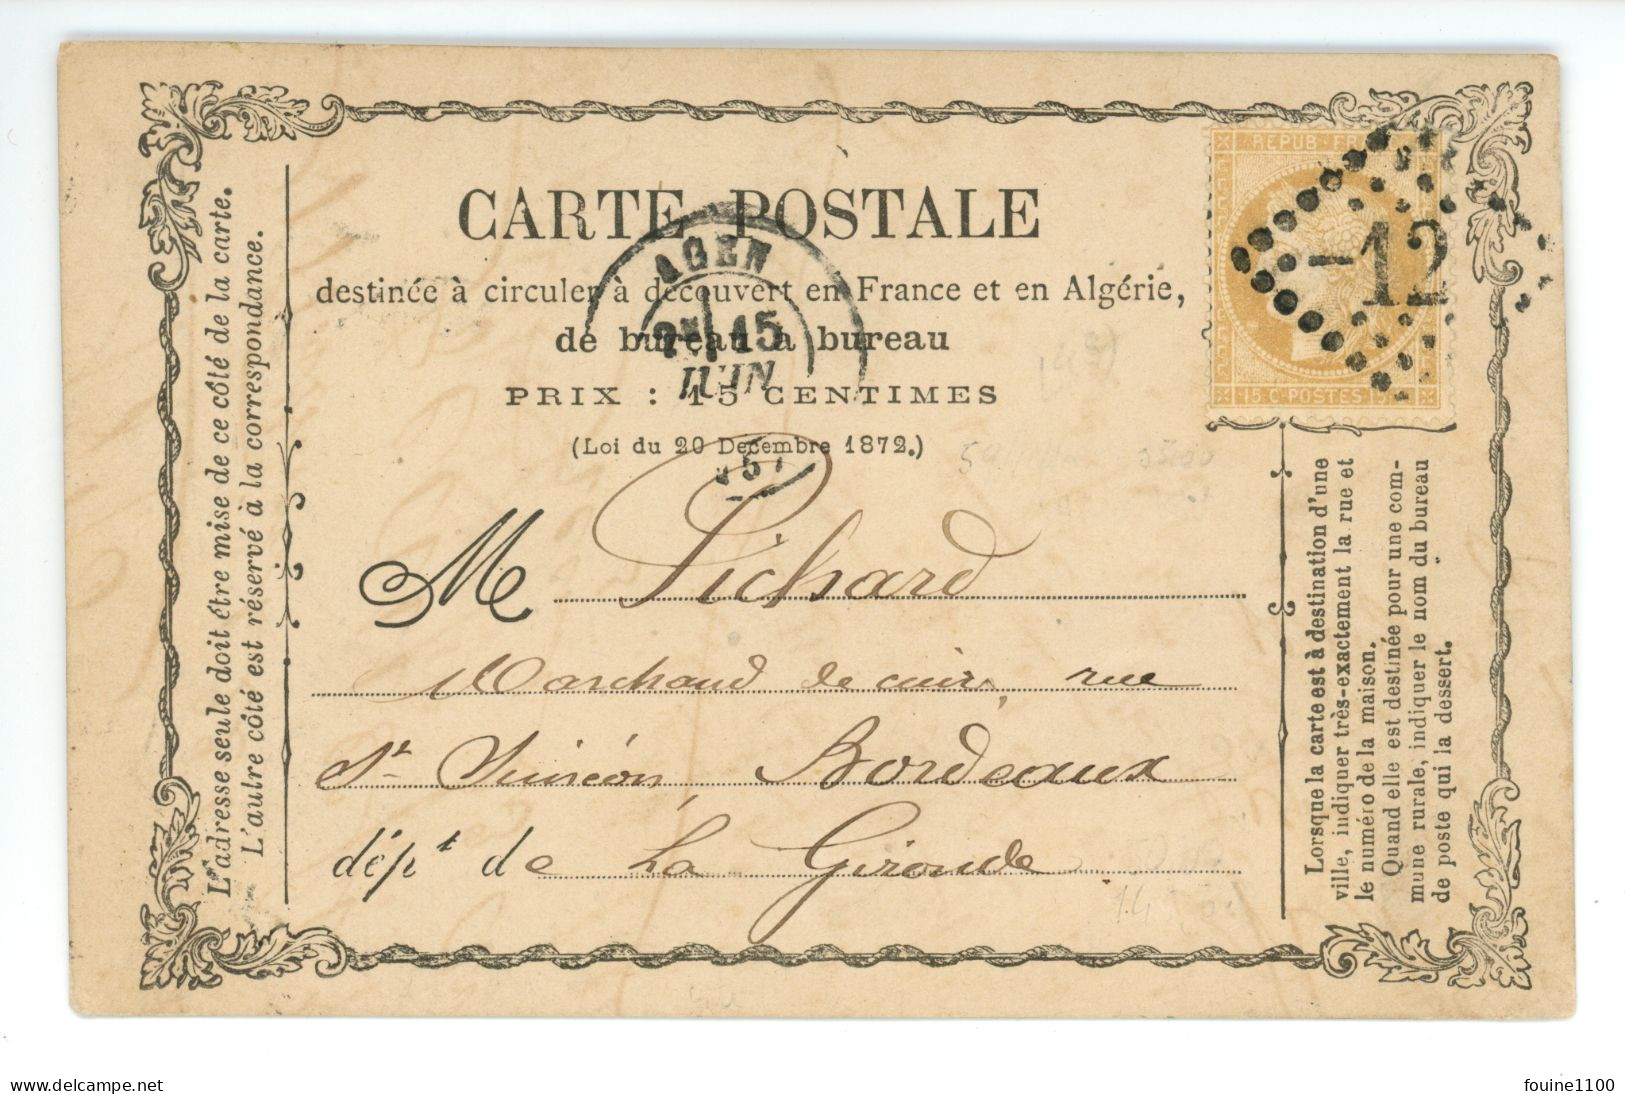 CARTE POSTALE
destinée à circuler à découvert en France et en Algérie,
de bureau à bureau
PRIX : 15 CENTIMES
(Loi du 20 Décembre 1872.)
AGEN
2E 15
JUIN
REPUB FR
12
15 C POSTES 15
L'adresse seule doit être mise de ce côté de la carte.
L'autre côté est réservé à la correspondance.
M Pichard
Marchand de cuir, rue
St Siméon, Bordeaux
dépt de La Gironde
Lorsque la carte est à destination d'une
ville, indiquer très-exactement la rue et
le numéro de la maison.
Quand elle est destinée pour une com-
mune rurale, indiquer le nom du bureau
de poste qui la dessert.
www.delcampe.net
fouine1100